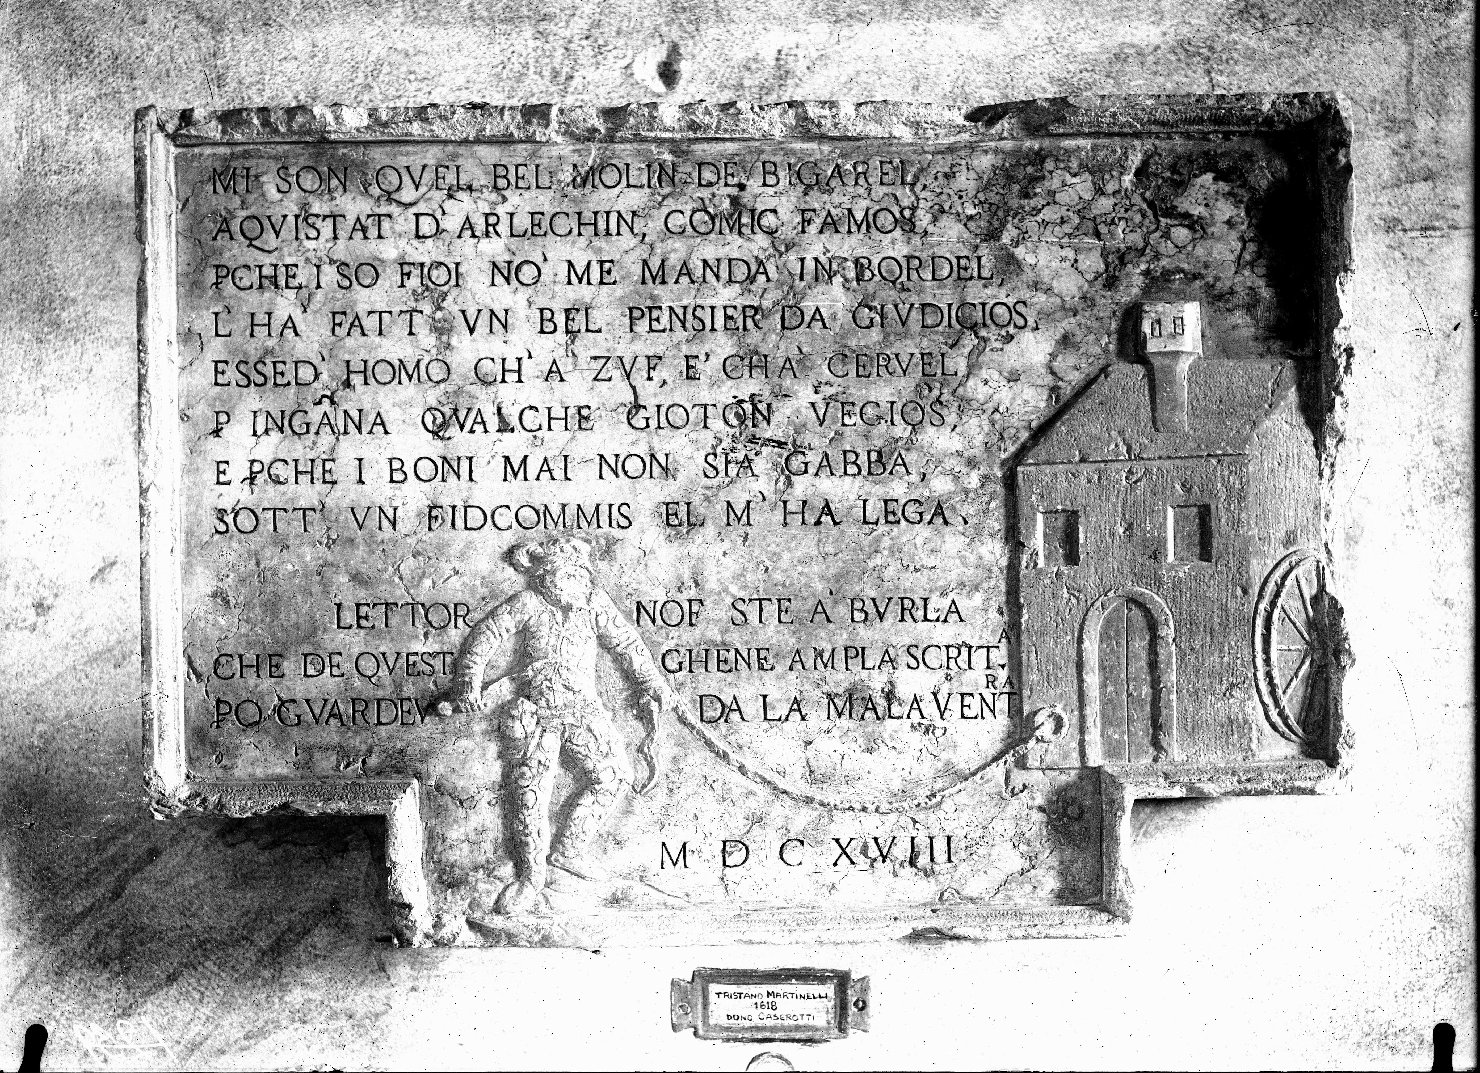 MI SON QVEL BEL MOLIN DE BIGAREL
AQVISTAT D'ARLECHIN, COMIC FAMOS
PCHE I SO FIOI NO' ME MANDA IN BORDEL
L' HA' FATT VN BEL PENSIER DA GIVDICIOS
ESSED' HOMO CH' A' ZVF, E' CHA' CERVEL
P INGANA QVALCHE GIOTON VEGIOS
E PCHE I BONI MAI NON SIA GABBA,
SOTT' VN FIDCOMMIS EL M' HA LEGA,
LETTOR NOF STE A' BVRLA
CHE DE QVEST GHENE AMPLA SCRITA
PO GVARDEV DA LA MALAVENTRA
M D C XVIII
TRISTANO MARTINELLI
1618
DONO CASEROTTI